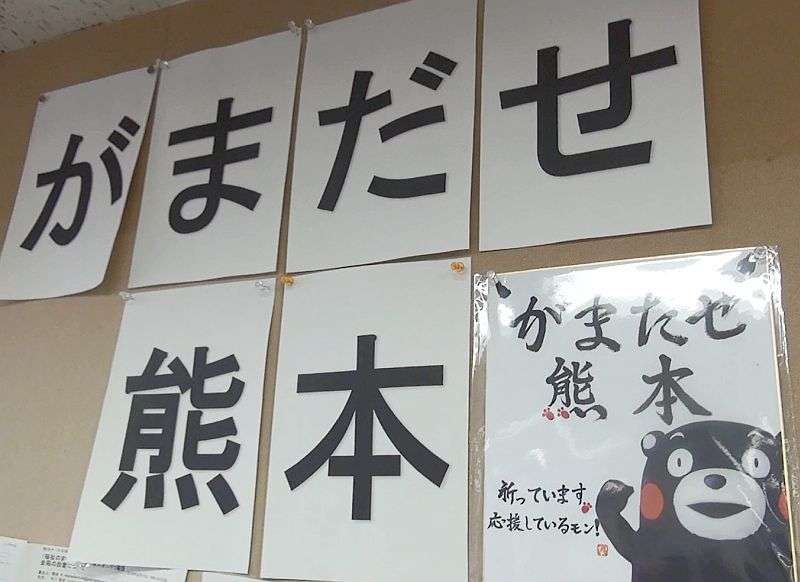 がまだせ
熊本
がまだせ
熊本
祈っています
応援しているモン!